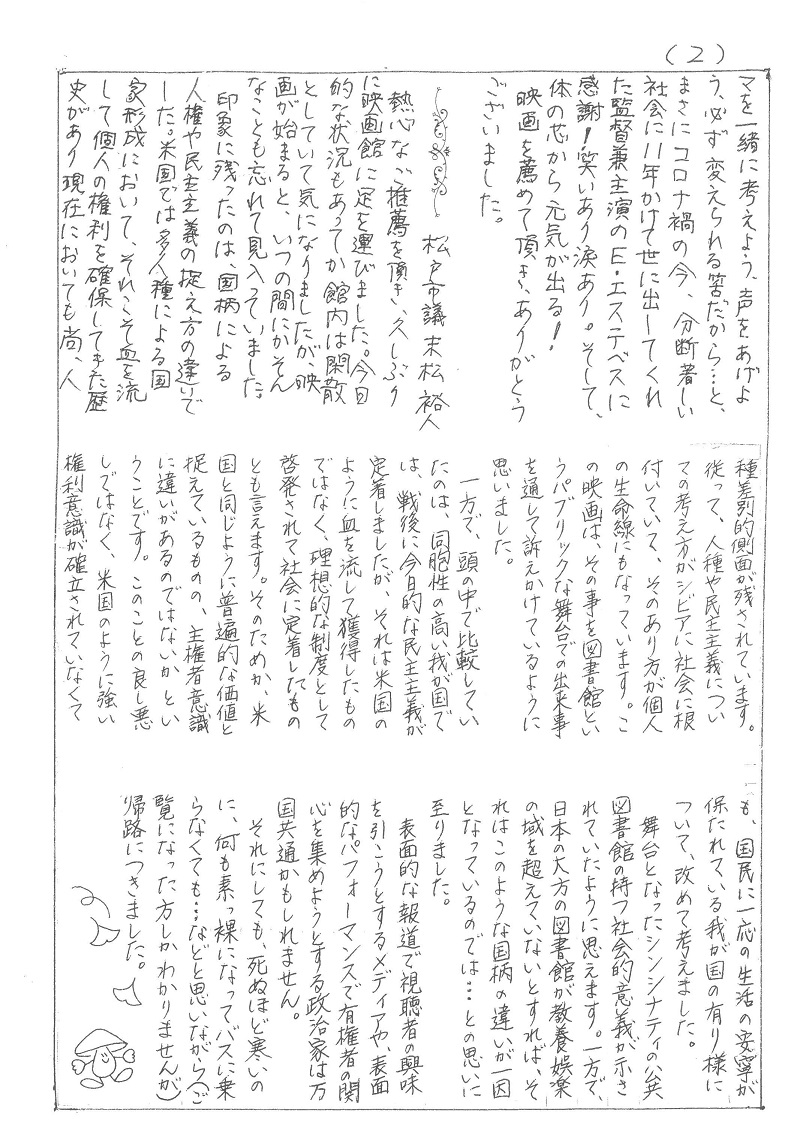 (2)
マを一緒に考えよう、声をあげよ
う、必ず変えられる筈だから…と、
まさにコロナ禍の今、分断著しい
社会に11年かけて世に出してくれ
た監督兼主演のE・エステベスに
感謝！笑いあり涙あり。そして、
体の芯から元気が出る！
映画を薦めて頂き、ありがとう
ございました。
松戸市議 末松 裕人
熱心なご推薦を頂き、久しぶり
に映画館に足を運びました。今日
的な状況もあってか館内は閑散
としていて気になりましたが、映
画が始まると、いつの間にかそん
なことも忘れて見入っていました。
印象に残ったのは、国柄による
人権や民主主義の捉え方の違いで
した。米国では多人種による国
家形成において、それこそ血を流
して個人の権利を確保してきた歴
史があり現在においても尚、人
種差別的側面が残されています。
従って、人種や民主主義につい
ての考え方がシビアに社会に根
付いていて、そのあり方が個人
の生命線にもなっています。こ
の映画は、その事を図書館とい
うパブリックな舞台での出来事
を通して訴えかけているように
思いました。
一方で、頭の中で比較してい
たのは、同胞性の高い我が国で
は、戦後に今日的な民主主義が
定着しましたが、それは米国の
ように血を流して獲得したもの
ではなく、理想的な制度として
啓発されて社会に定着したもの
とも言えます。そのためか、米
国と同じように普遍的な価値と
捉えているものの、主権者意識
に違いがあるのではないか とい
うことです。このことの良し悪
しではなく、米国のように強い
権利意識が確立されていなくて
も、国民に一応の生活の安寧が
保たれている我が国の有り様に
ついて、改めて考えました。
舞台となったシンシナティの公共
図書館の持つ社会的意義が示さ
れていたように思えます。一方で、
日本の大方の図書館が教養娯楽
の域を超えていないとすれば、そ
れはこのような国柄の違いが一因
となっているのでは…との思いに
至りました。
表面的な報道で視聴者の興味
を引こうとするメディアや、表面
的なパフォーマンスで有権者の関
心を集めようとする政治家は万
国共通かもしれません。
それにしても、死ぬほど寒いの
に、何も素っ裸になってバスに乗
らなくても…などと思いながら(ご
覧になった方しかわかりませんが)
帰路につきました。